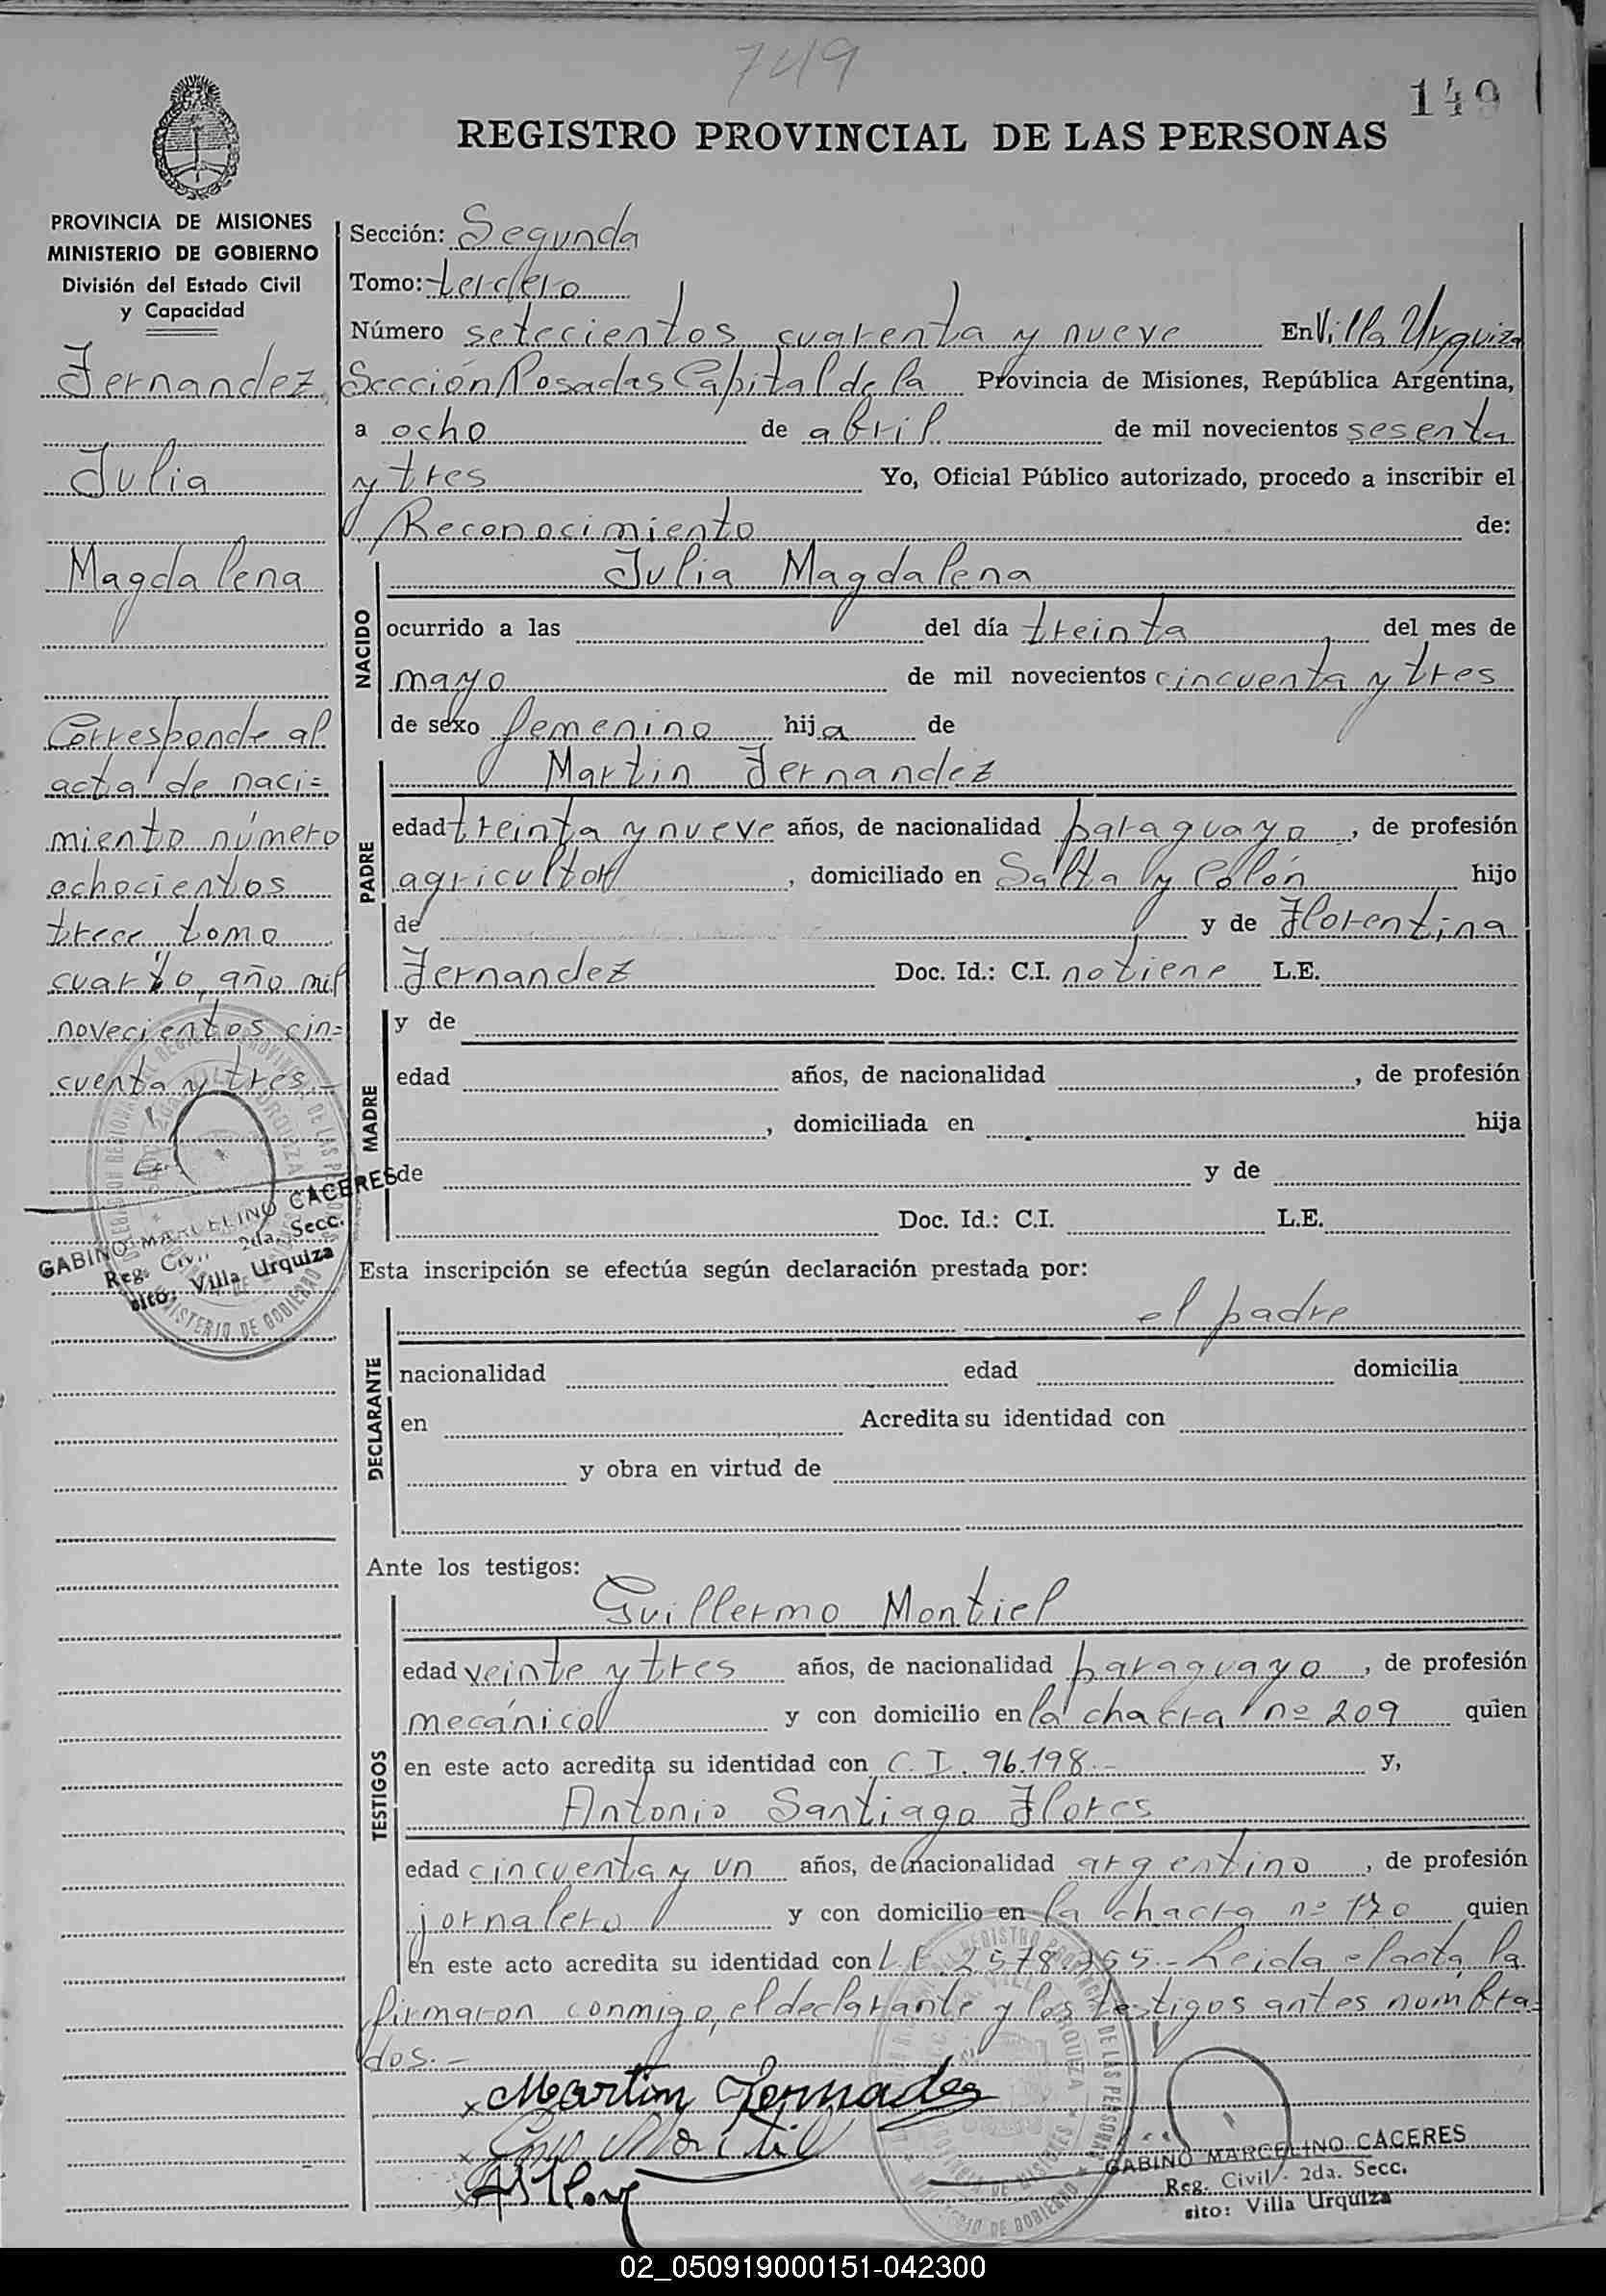 749
149
REGISTRO PROVINCIAL DE LAS PERSONAS
PROVINCIA DE MISIONES
MINISTERIO DE GOBIERNO
División del Estado Civil
y Capacidad
Fernandez
Julia
Magdalena
Corresponde al
acta de naci=
miento número
ochocientos
trece tomo
cuarto, año mil
novecientos cin=
cuenta y tres.-
GABINO MARCELINO CACERES
Reg. Civil 2da. Secc.
sito: Villa Urquiza
Sección: Segunda
Tomo: tercero
Número setecientos cuarenta y nueve En Villa Urquiza
Sección Posadas Capital de la Provincia de Misiones, República Argentina,
a ocho de abril de mil novecientos sesenta
y tres Yo, Oficial Público autorizado, procedo a inscribir el
Reconocimiento de:
NACIDO
Julia Magdalena
ocurrido a las del día treinta del mes de
mayo de mil novecientos cincuenta y tres
de sexo femenino hija de
PADRE
Martin Fernandez
edad treinta y nueve años, de nacionalidad paraguayo, de profesión
agricultor, domiciliado en Salta y Colón hijo
de y de Florentina
Fernandez Doc. Id.: C.I. no tiene L.E.
MADRE
y de
edad años, de nacionalidad , de profesión
, domiciliada en hija
de y de
Doc. Id.: C.I. L.E.
Esta inscripción se efectúa según declaración prestada por:
DECLARANTE
el padre
nacionalidad edad domicilia
en Acredita su identidad con
y obra en virtud de
Ante los testigos:
TESTIGOS
Guillermo Montiel
edad veinte y tres años, de nacionalidad paraguayo, de profesión
mecánico y con domicilio en la chacra nº 209 quien
en este acto acredita su identidad con C.I. 96.198.- y,
Antonio Santiago Flores
edad cincuenta y un años, de nacionalidad argentino, de profesión
jornalero y con domicilio en la chacra nº 170 quien
en este acto acredita su identidad con L.E. .- Leida el acta, la
firmaron conmigo, el declarante y los testigos antes nombra=
dos.-
x Martin Fernadez
x
x
GABINO MARCELINO CACERES
Reg. Civil - 2da. Secc.
sito: Villa Urquiza
02_050919000151-042300